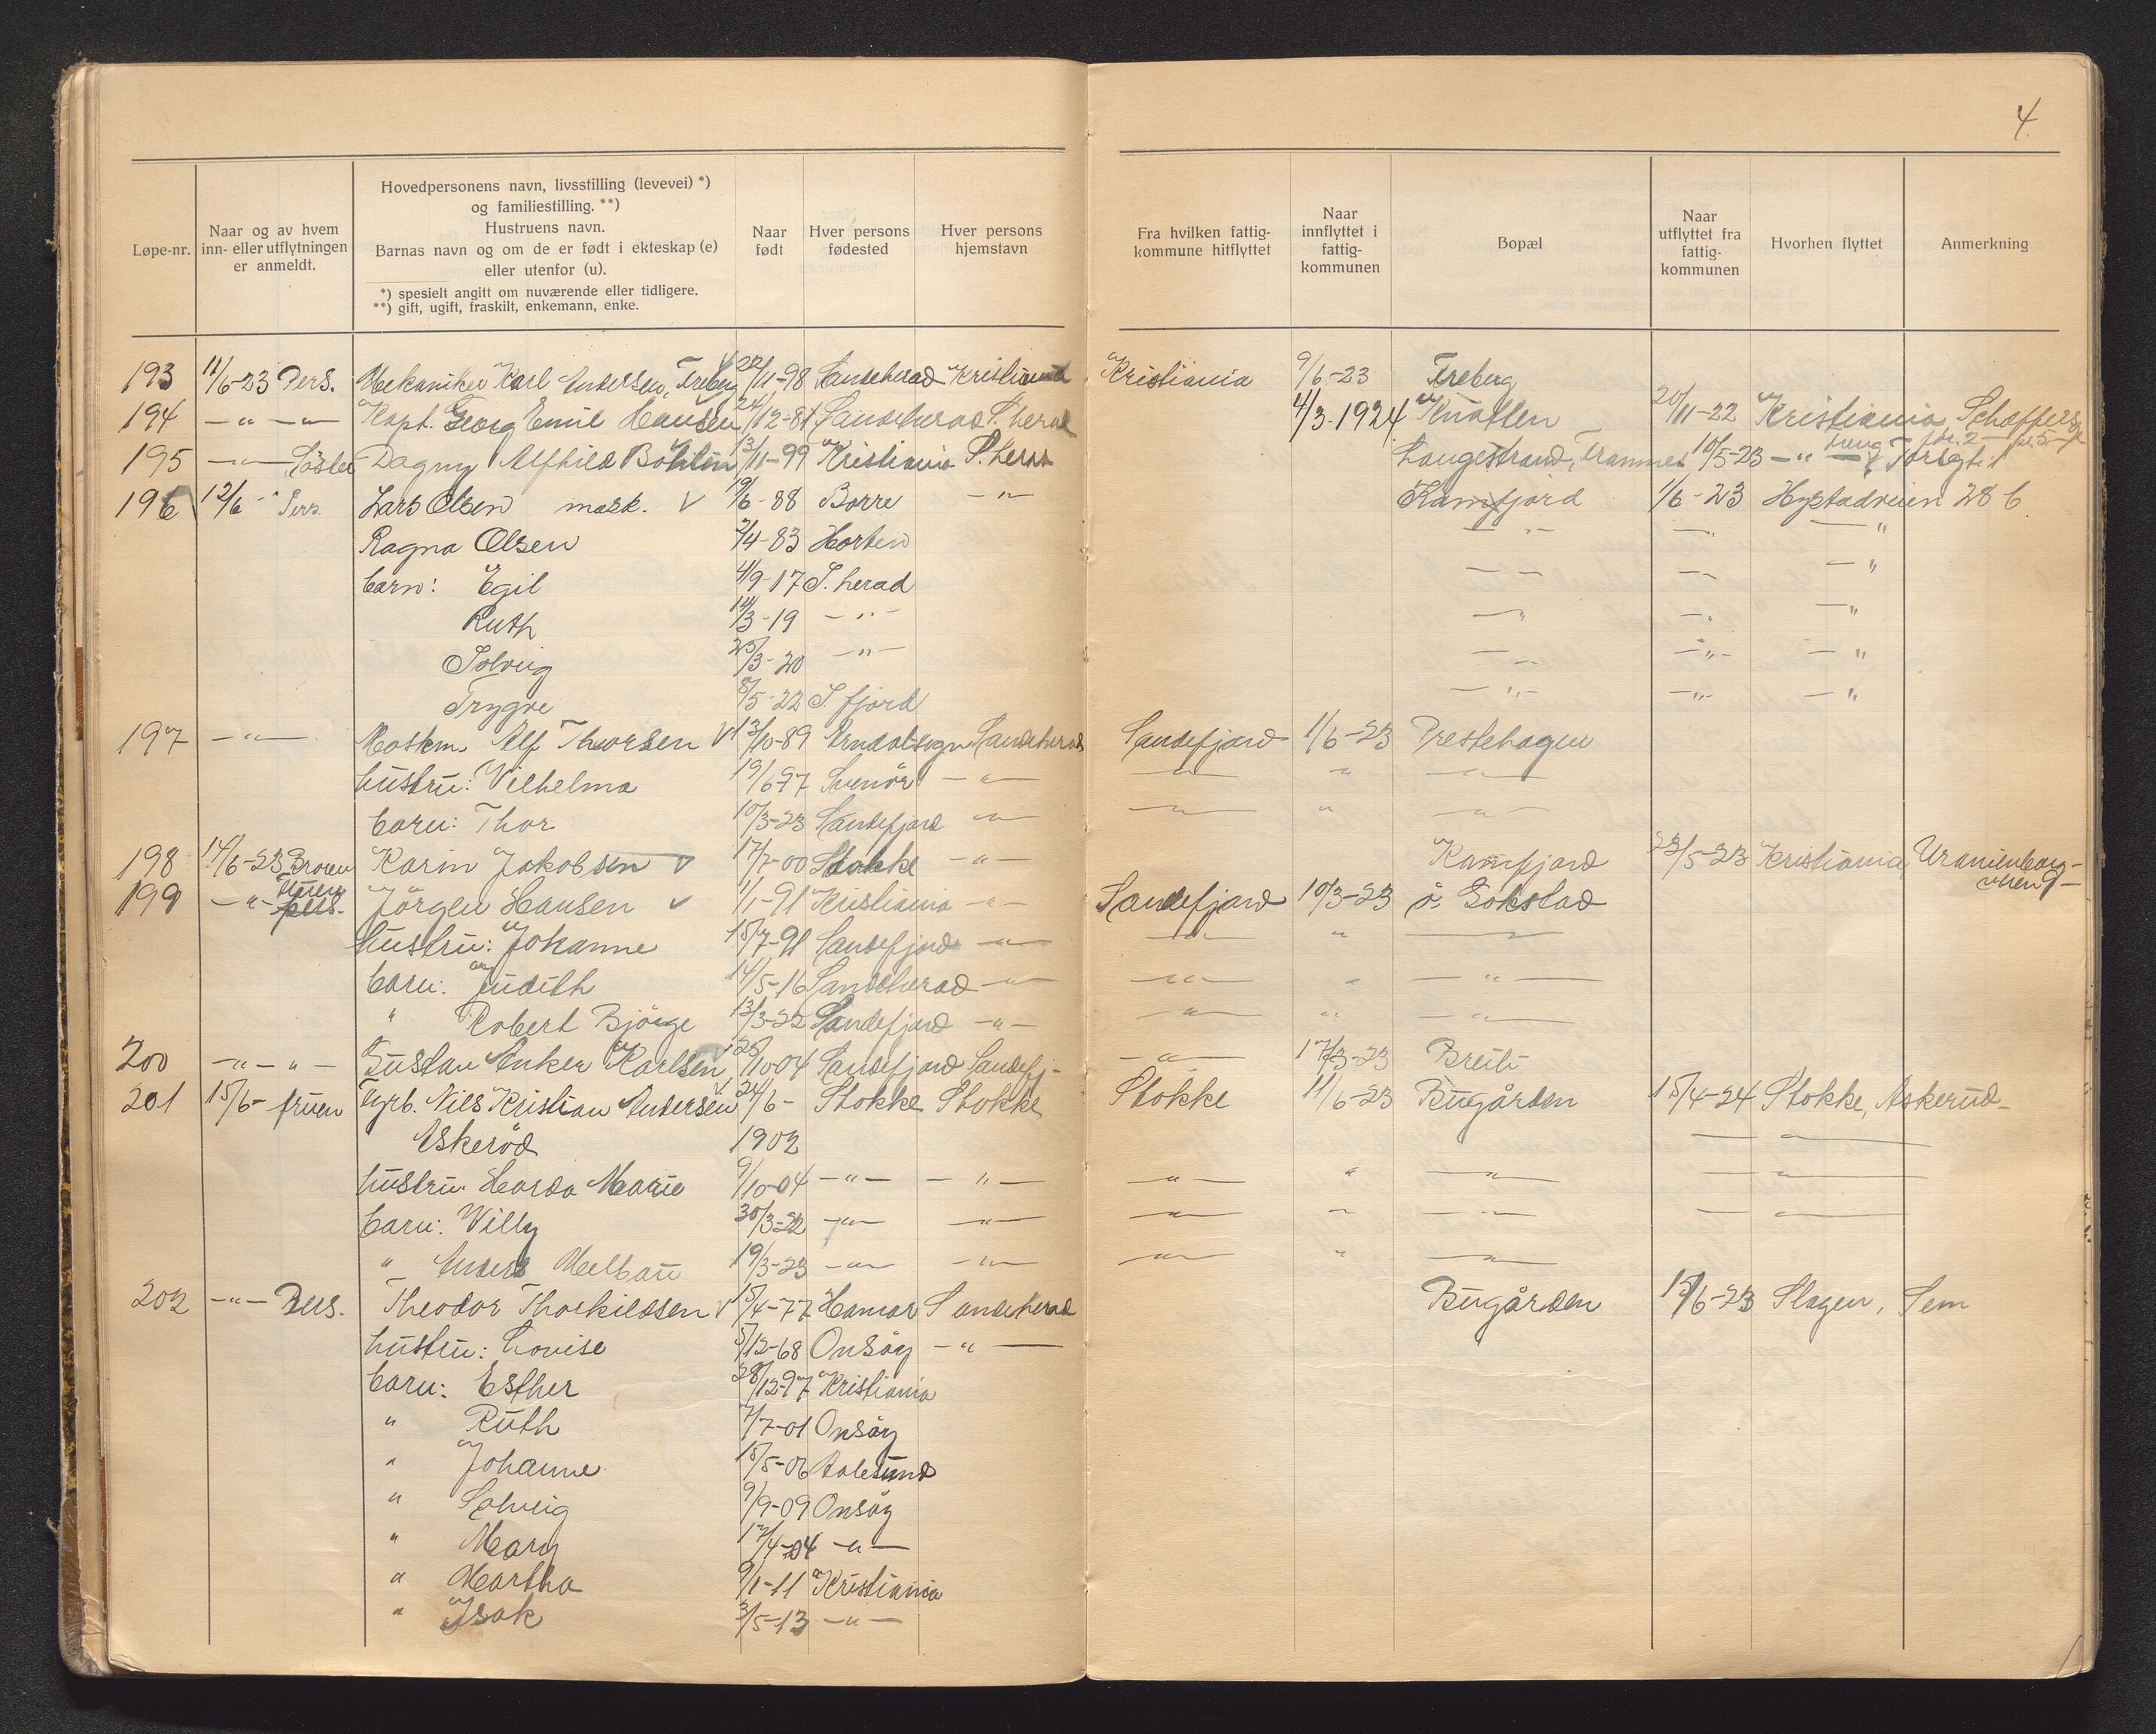 4.
Løpe-nr.
Naar og av hvem
inn- eller utflytningen
er anmeldt.
Hovedpersonens navn, livsstilling (levevei) *)
og familiestilling. **)
Hustruens navn.
Barnas navn og om de er født i ekteskap (e)
eller utenfor (u).
*) spesielt angitt om nuværende eller tidligere.
**) gift, ugift, fraskilt, enkemann, enke.
Naar
født
Hver persons
fødested
Hver persons
hjemstavn
Fra hvilken fattig-
kommune hitflyttet
Naar
innflyttet i
fattig-
kommunen
Bopæl
Naar
utflyttet fra
fattig-
kommunen
Hvorhen flyttet
Anmerkning
193 11/6-23 Pers. Mekaniker Karl Andersen, Freberg 22/11-98 Sandeherad Kristiania Kristiania 9/6-23 Freberg
194 -"- -"- Kapt. Georg Emil Hansen 24/12-81 Sandeherad S. herad 4/3.1924 Knatten 20/11-22 Kristiania, Schæffers
195 -"- Søster Dagny Alfhild 13/11-99 Kristiania S. herad Langestrand, 10/5-23 -"- Torsgt. 1
196 12/6 -" Pers. Lars Olsen mask. V 19/6-88 Borre -"- Kamfjord 1/6-23 Hystadveien 28 b.
Ragna Olsen 2/4-83 Horten -"- -"- -"-
barn: Egil 4/9-17 S. herad -"- -"- -"-
Ruth 14/3-19 -"- -"- -"- -"-
Solveig 25/3-20 -"- -"- -"- -"-
Trygve 8/5-22 S. fjord -"- -"- -"-
197 -"- Maskm. Alf Thorsen V 13/10-89 Sandeherad Sandefjord 1/6-23 Prestehagen
hustru: Vilhelma 19/6 97 Svenör -"- -"- " -"-
barn: Thor 10/3-23 Sandefjord -"- -"- " -"-
198 14/6-23 Broren Karin Jakobsen V 17/7-00 Stokke -"- Kamfjord 23/5-23 Kristiania, Uranienborg-
veien 9-
199 -"- pers. Jörgen Hansen V 1/1-91 Kristiania -"- Sandefjord 10/3-23 ö. Gokstad
hustru: Johanne 15/7-91 Sandefjord -"- -"- " -"-
barn: Judith 14/5-16 Sandeherad -"- -"- " -"-
" Robert Björge 13/3-22 Sandefjord -"- -"- " -"-
200 -"- " - Gustav Anker Karlsen V 25/10-04 Sandefjord Sandefj- -"- 17/3-23 Breili
201 15/6- fruen Fyrb. Nils Kristian Andersen V 24/6- Stokke Stokke Stokke 11/6-23 Bugården 15/4-24 Stokke, Askerud-
Askeröd 1902 -"-
hustru: Marie 9/10-04 -"- -"- -"- " -"- -"-
barn: Willy 30/3-22 -"- -"- -"- " -"- -"-
" Anders 19/3-23 -"- -"- -"- " -"-
202 -"- Pers. Theodor Thorkildsen V 15/4-77 Hamar Sandeherad Bugården 15/6-23 Slagen, Sem
hustru: Lovise 5/12-68 Onsöy -"-
barn: Esther 28/12-97 Kristiania
" Ruth 7/7-01 Onsöy
" Johanne 15/5-06 Aalesund
" Solveig 9/9-09 Onsöy
" Mary 17/4-04 -"-
" Martha 9/1-11 Kristiania
" Isak 3/5-13 -"-